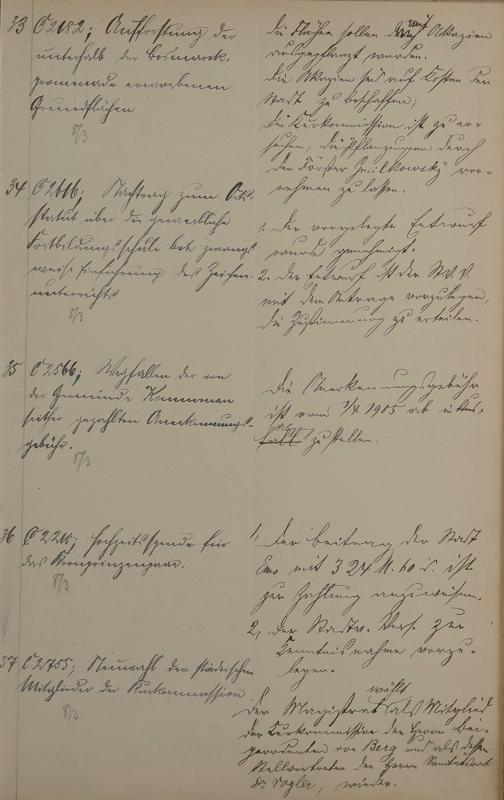 33 C 2182; Aufforstung der
unterhalb der Bismarck-
promenade erworbenen
Grundflächen
8/3
Die Flächen sollen mit Akazien
ausgepflanzt werden.
Die Akazien sind auf Kosten der
Stadt zu beschaffen;
Die Kurkommission ist zu er-
suchen, die Pflanzungen durch
den Förster vor-
nehmen zu lassen.
34 C 2616; Nachtrag zum Orts-
statut über die gewerbliche
Fortbildungsschule betr. zwangs-
weise Einführung des Zeichen-
unterrichts
8/3
1. Der vorgelegte Entwurf
wurde genehmigt.
2. Der Entwurf ist der St.V.V.
mit dem Antrage vorzulegen,
die Zustimmung zu erteilen.
35 C 2566; Wegfallen der von
der Gemeinde Kemmenau
seither gezahlten Anerkennungs-
gebühr.
8/3
Die Anerkennungsgebühr
ist vom 1/4 1905 ab in
zu stellen.
36 C 2210; Hochzeitsspende für
das Kronprinzenpaar.
8/3
1, Der Beitrag der Stadt
Ems mit 324 M. 60 d. ist
zur Zahlung anzuweisen.
2, Der Stadtv. Vers. zur
Kenntnisnahme vorzu-
legen.
37 C 2755; Neuwahl der städtischen
Mitglieder der Kurkommission.
8/3
Der Magistrat wählt als Mitglied
der Kurkommission den Herrn Bei-
geordneten von Berg und als dessen
Stellvertreter den Herrn Sanitätsrat
Dr. Vogler, wieder.